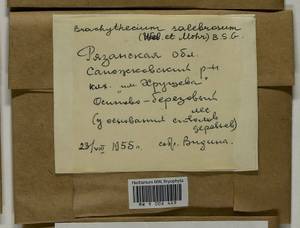 Brachythecium salebrosum
(Web. et Mohr) B.S.G.
Рязанская обл.
Сапожковский р-н
клх. "им. Хрущева"
Осиново-березовый
лес
(у основания стволов
деревьев)
23/VIII 1955 г. собр.
Herbarium MW, Bryophyta